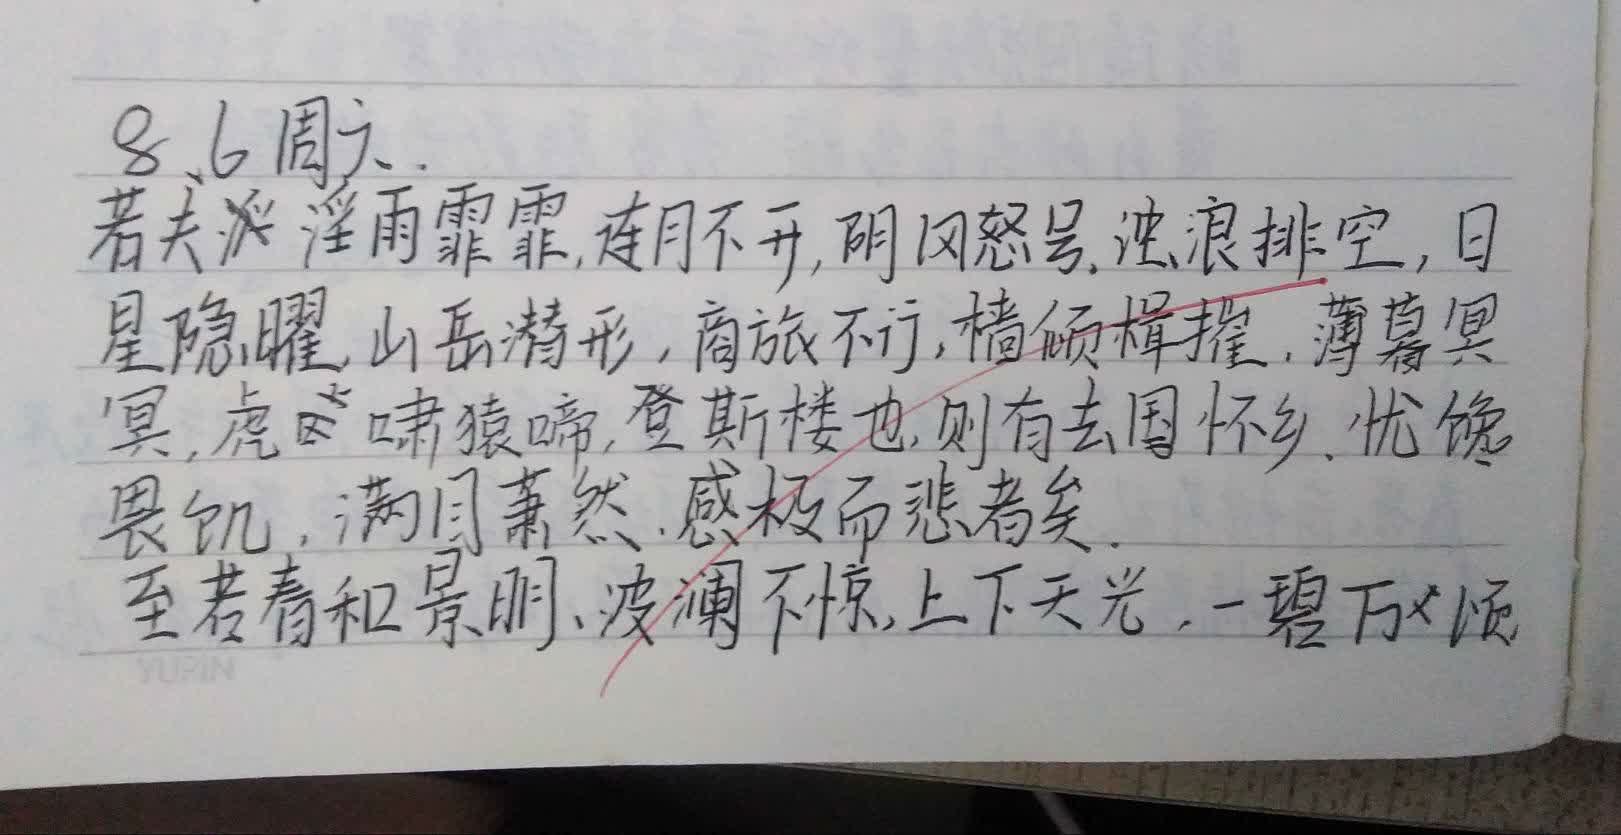 8.6周六.
若夫淫雨霏霏,连月不开,阴风怒号,浊浪排空,日
星隐曜,山岳潜形,商旅不行,樯倾楫摧,薄暮冥
冥,虎啸猿啼,登斯楼也,则有去国怀乡、忧馋
畏饥,满目萧然.感极而悲者矣.
至若春和景明、波澜不惊,上下天光,一碧万顷
YURIN